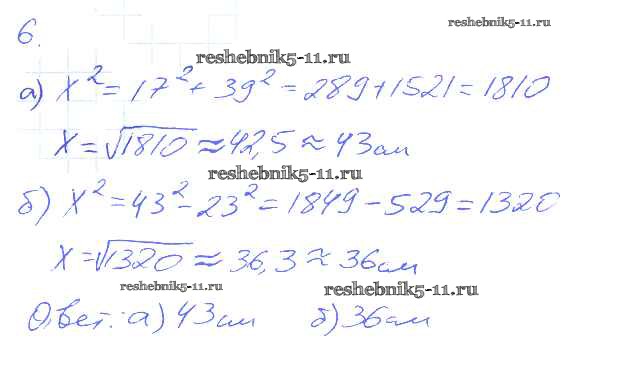 reshebnik5-11.ru
6.
reshebnik5-11.ru
а) x² = 17² + 39² = 289 + 1521 = 1810
x = √1810 ≈ 42,5 ≈ 43 см
reshebnik5-11.ru
б) x² = 43² - 23² = 1849 - 529 = 1320
x = √1320 ≈ 36,3 ≈ 36 см
reshebnik5-11.ru
reshebnik5-11.ru
Ответ: а) 43 см б) 36 см